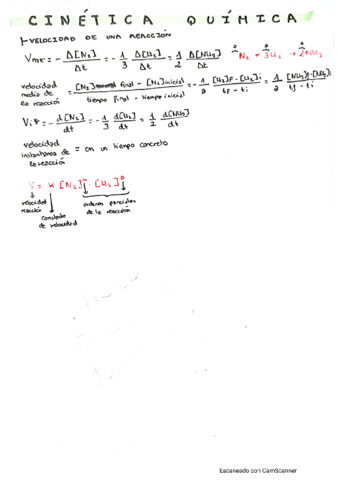 CINÉTICA QUÍMICA
1-VELOCIDAD DE UNA REACCIÓN
Vmr = - Δ[N₂]/Δt = - 1/3 Δ[H₂]/Δt = 1/2 Δ[NH₃]/Δt N₂ + 3H₂ → 2NH₃
velocidad media de la reacción = [N₂] final - [N₂] inicial / tiempo final - tiempo inicial
Vir = - d[N₂]/dt = - 1/3 d[H₂]/dt = 1/2 d[NH₃]/dt
velocidad
instantánea de = en un tiempo concreto
la reacción
V = K [N₂] · [H₂]
velocidad reacción
constante de velocidad
ordenes parciales de la reacción
Escaneado con CamScanner